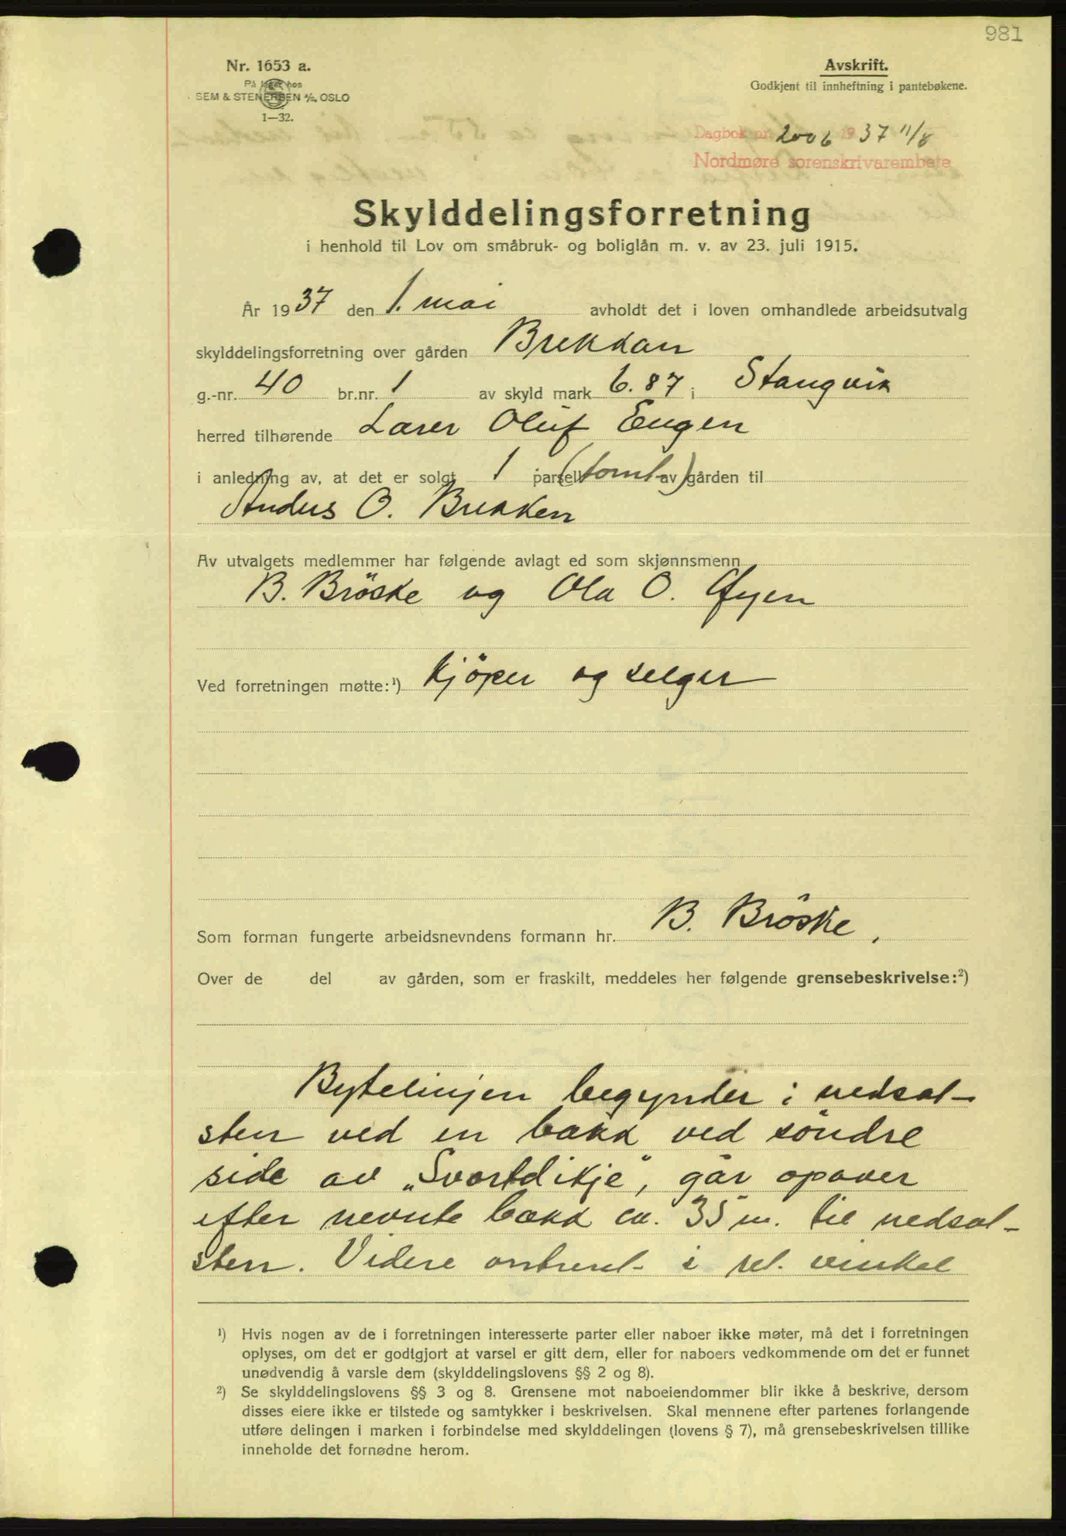 981
Nr. 1653 a.
På lager hos
SEM & STENERSEN A/S, OSLO
1—32.
Avskrift.
Godkjent til innheftning i pantebøkene.
Dagbok nr. 2006 1937 11/8
Nordmøre sorenskrivarembete
Skylddelingsforretning
i henhold til Lov om småbruk- og boliglån m. v. av 23. juli 1915.
År 1937 den 1. mai avholdt det i loven omhandlede arbeidsutvalg
skylddelingsforretning over gården Brekkan
g.-nr. 40 br.nr. 1 av skyld mark 6.87 i Stangvik
herred tilhørende Lærer Oluf Eugen
i anledning av, at det er solgt 1 parsell (tomt) av gården til
Anders O. Brekken
Av utvalgets medlemmer har følgende avlagt ed som skjønnsmenn
B. Bröske og Ola O. Øyen
Ved forretningen møtte:¹) Kjöper og selger
Som forman fungerte arbeidsnevndens formann hr. B. Bröske.
Over de del av gården, som er fraskilt, meddeles her følgende grensebeskrivelse:²)
Bytelinjen begynder i nedsat-
sten ved en bækk ved söndre
side av „Svartdikje", går opover
efter nevnte bækk ca. 35 m. til nedsat-
sten. Videre omtrent i ret. vinkel
¹) Hvis nogen av de i forretningen interesserte parter eller naboer ikke møter, må det i forretningen
oplyses, om det er godtgjort at varsel er gitt dem, eller for naboers vedkommende om det er funnet
unødvendig å varsle dem (skylddelingslovens §§ 2 og 8).
²) Se skylddelingslovens §§ 3 og 8. Grensene mot naboeiendommer blir ikke å beskrive, dersom
disses eiere ikke er tilstede og samtykker i beskrivelsen. Skal mennene efter partenes forlangende
utføre delingen i marken i forbindelse med skylddelingen (lovens § 7), må grensebeskrivelsen tillike
inneholde det fornødne herom.